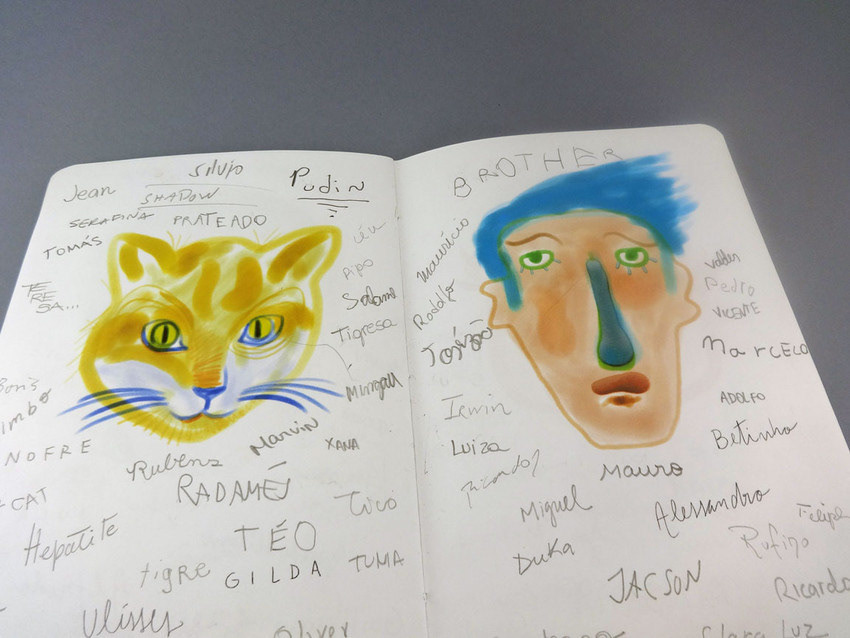 Jean
Silvio
SHADOW
Pudin
SERAFINA
PRATEADO
TOMÁS
TE
RE
SA...
Pipo
Tigresa
Mingau
Boris
imbo
NOFRE
CAT
Rubens
Marvin
XANA
RADAMÉS
Tico
Hepatite
TÉO
tigre
GILDA
TUMA
Ulisses
Oliver
BROTHER
Maurício
Rodolfo
Tosizão
Irwin
Luiza
Ricardo
Valder
Pedro
VICENTE
Marcelo
ADOLFO
Betinho
Mauro
Miguel
Alessandro
Felipe
Duka
Rufino
JACSON
Ricardo
Clara Luz